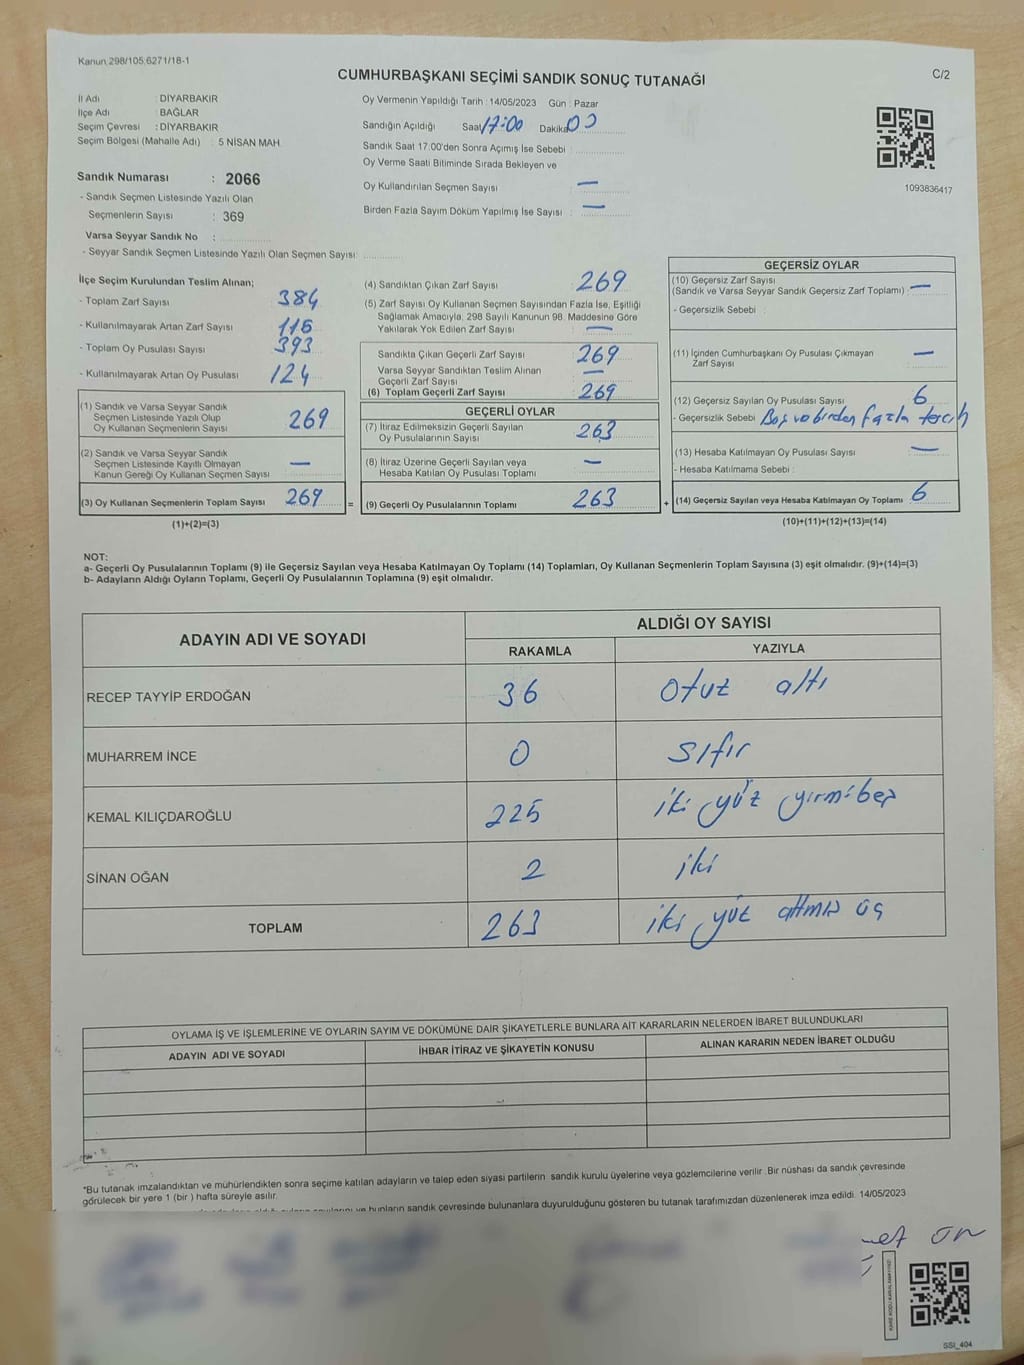 Kanun 298/105,6271/18-1
CUMHURBAŞKANI SEÇİMİ SANDIK SONUÇ TUTANAĞI
C/2
İl Adı : DİYARBAKIR
İlçe Adı : BAĞLAR
Seçim Çevresi : DİYARBAKIR
Seçim Bölgesi (Mahalle Adı) : 5 NİSAN MAH.
Sandık Numarası : 2066
- Sandık Seçmen Listesinde Yazılı Olan
Seçmenlerin Sayısı : 369
Varsa Seyyar Sandık No :
- Seyyar Sandık Seçmen Listesinde Yazılı Olan Seçmen Sayısı:
Oy Vermenin Yapıldığı Tarih : 14/05/2023 Gün : Pazar
Sandığın Açıldığı Saat 17:00 Dakika 00
Sandık Saat 17:00'den Sonra Açılmış İse Sebebi :
Oy Verme Saati Bitiminde Sırada Bekleyen ve
Oy Kullandırılan Seçmen Sayısı : —
Birden Fazla Sayım Döküm Yapılmış İse Sayısı : —
1093836417
İlçe Seçim Kurulundan Teslim Alınan;
- Toplam Zarf Sayısı 384
- Kullanılmayarak Artan Zarf Sayısı 115
- Toplam Oy Pusulası Sayısı 393
- Kullanılmayarak Artan Oy Pusulası 124
(1) Sandık ve Varsa Seyyar Sandık
Seçmen Listesinde Yazılı Olup
Oy Kullanan Seçmenlerin Sayısı 269
(2) Sandık ve Varsa Seyyar Sandık
Seçmen Listesinde Kayıtlı Olmayan
Kanun Gereği Oy Kullanan Seçmen Sayısı —
(3) Oy Kullanan Seçmenlerin Toplam Sayısı 269
(1)+(2)=(3)
(4) Sandıktan Çıkan Zarf Sayısı 269
(5) Zarf Sayısı Oy Kullanan Seçmen Sayısından Fazla İse, Eşitliği
Sağlamak Amacıyla, 298 Sayılı Kanunun 98. Maddesine Göre
Yakılarak Yok Edilen Zarf Sayısı —
Sandıkta Çıkan Geçerli Zarf Sayısı 269
Varsa Seyyar Sandıktan Teslim Alınan
Geçerli Zarf Sayısı —
(6) Toplam Geçerli Zarf Sayısı 269
GEÇERLİ OYLAR
(7) İtiraz Edilmeksizin Geçerli Sayılan
Oy Pusulalarının Sayısı 263
(8) İtiraz Üzerine Geçerli Sayılan veya
Hesaba Katılan Oy Pusulası Toplamı —
= (9) Geçerli Oy Pusulalarının Toplamı 263
GEÇERSİZ OYLAR
(10) Geçersiz Zarf Sayısı
(Sandık ve Varsa Seyyar Sandık Geçersiz Zarf Toplamı) : —
- Geçersizlik Sebebi :
(11) İçinden Cumhurbaşkanı Oy Pusulası Çıkmayan
Zarf Sayısı —
(12) Geçersiz Sayılan Oy Pusulası Sayısı 6
- Geçersizlik Sebebi Boş ve birden fazla tercih
(13) Hesaba Katılmayan Oy Pusulası Sayısı —
- Hesaba Katılmama Sebebi :
+ (14) Geçersiz Sayılan veya Hesaba Katılmayan Oy Toplamı 6
(10)+(11)+(12)+(13)=(14)
NOT:
a- Geçerli Oy Pusulalarının Toplamı (9) ile Geçersiz Sayılan veya Hesaba Katılmayan Oy Toplamı (14) Toplamları, Oy Kullanan Seçmenlerin Toplam Sayısına (3) eşit olmalıdır. (9)+(14)=(3)
b- Adayların Aldığı Oyların Toplamı, Geçerli Oy Pusulalarının Toplamına (9) eşit olmalıdır.
ADAYIN ADI VE SOYADI ALDIĞI OY SAYISI
RAKAMLA YAZIYLA
RECEP TAYYİP ERDOĞAN 36 otuz altı
MUHARREM İNCE 0 sıfır
KEMAL KILIÇDAROĞLU 225 iki yüz yirmi beş
SİNAN OĞAN 2 iki
TOPLAM 263 iki yüz altmış üç
OYLAMA İŞ VE İŞLEMLERİNE VE OYLARIN SAYIM VE DÖKÜMÜNE DAİR ŞİKAYETLERLE BUNLARA AİT KARARLARIN NELERDEN İBARET BULUNDUKLARI
ADAYIN ADI VE SOYADI İHBAR İTİRAZ VE ŞİKAYETİN KONUSU ALINAN KARARIN NEDEN İBARET OLDUĞU
*Bu tutanak imzalandıktan ve mühürlendikten sonra seçime katılan adayların ve talep eden siyasi partilerin sandık kurulu üyelerine veya gözlemcilerine verilir. Bir nüshası da sandık çevresinde
görülecek bir yere 1 (bir) hafta süreyle asılır.
ve bunların sandık çevresinde bulunanlara duyurulduğunu gösteren bu tutanak tarafımızdan düzenlenerek imza edildi. 14/05/2023
SSI_404